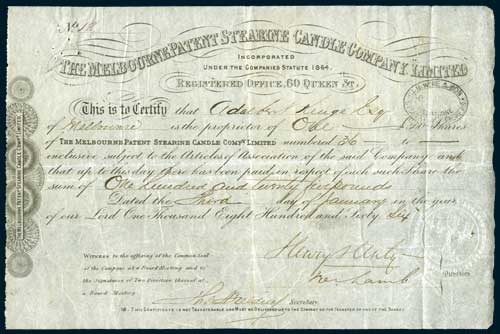 No
THE MELBOURNE PATENT STEARINE CANDLE COMPANY LIMITED
INCORPORATED
UNDER THE COMPANIES STATUTE 1864.
REGISTERED OFFICE, 60 QUEEN St.
This is to Certify that Esq
of Melbourne is the proprietor of One Shares
of THE MELBOURNE PATENT STEARINE CANDLE COMPy. LIMITED numbered 36 to
inclusive subject to the Articles of Association of the said Company and
that up to this day there has been paid in respect of each such Share the
sum of One hundred and twenty five pounds
Dated the Third day of January in the year
of our Lord One Thousand Eight Hundred and Sixty Six
WITNESS to the affixing of the Common Seal
of the Company at a Board Meeting and to
the signatures of Two Directors thereof at
a Board Meeting
Directors
Secretary.
NB. THIS CERTIFICATE IS NOT TRANSFERABLE AND MUST BE DELIVERED UP TO THE COMPANY ON THE TRANSFER OF ANY OF THE SHARES